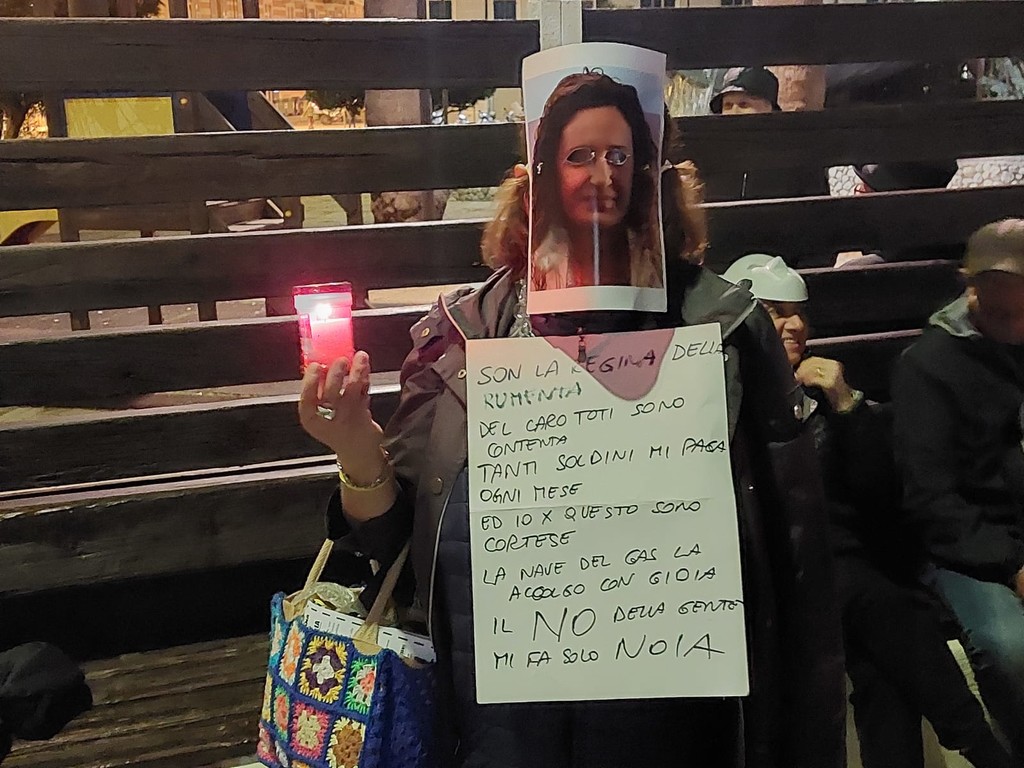 SON LA REGINA DELLA
RUMENTA
DEL CARO TOTI SONO
CONTENTA
TANTI SOLDINI MI PAGA
OGNI MESE
ED IO X QUESTO SONO
CORTESE
LA NAVE DEL GAS LA
ACCOLGO CON GIOIA
IL NO DELLA GENTE
MI FA SOLO NOIA